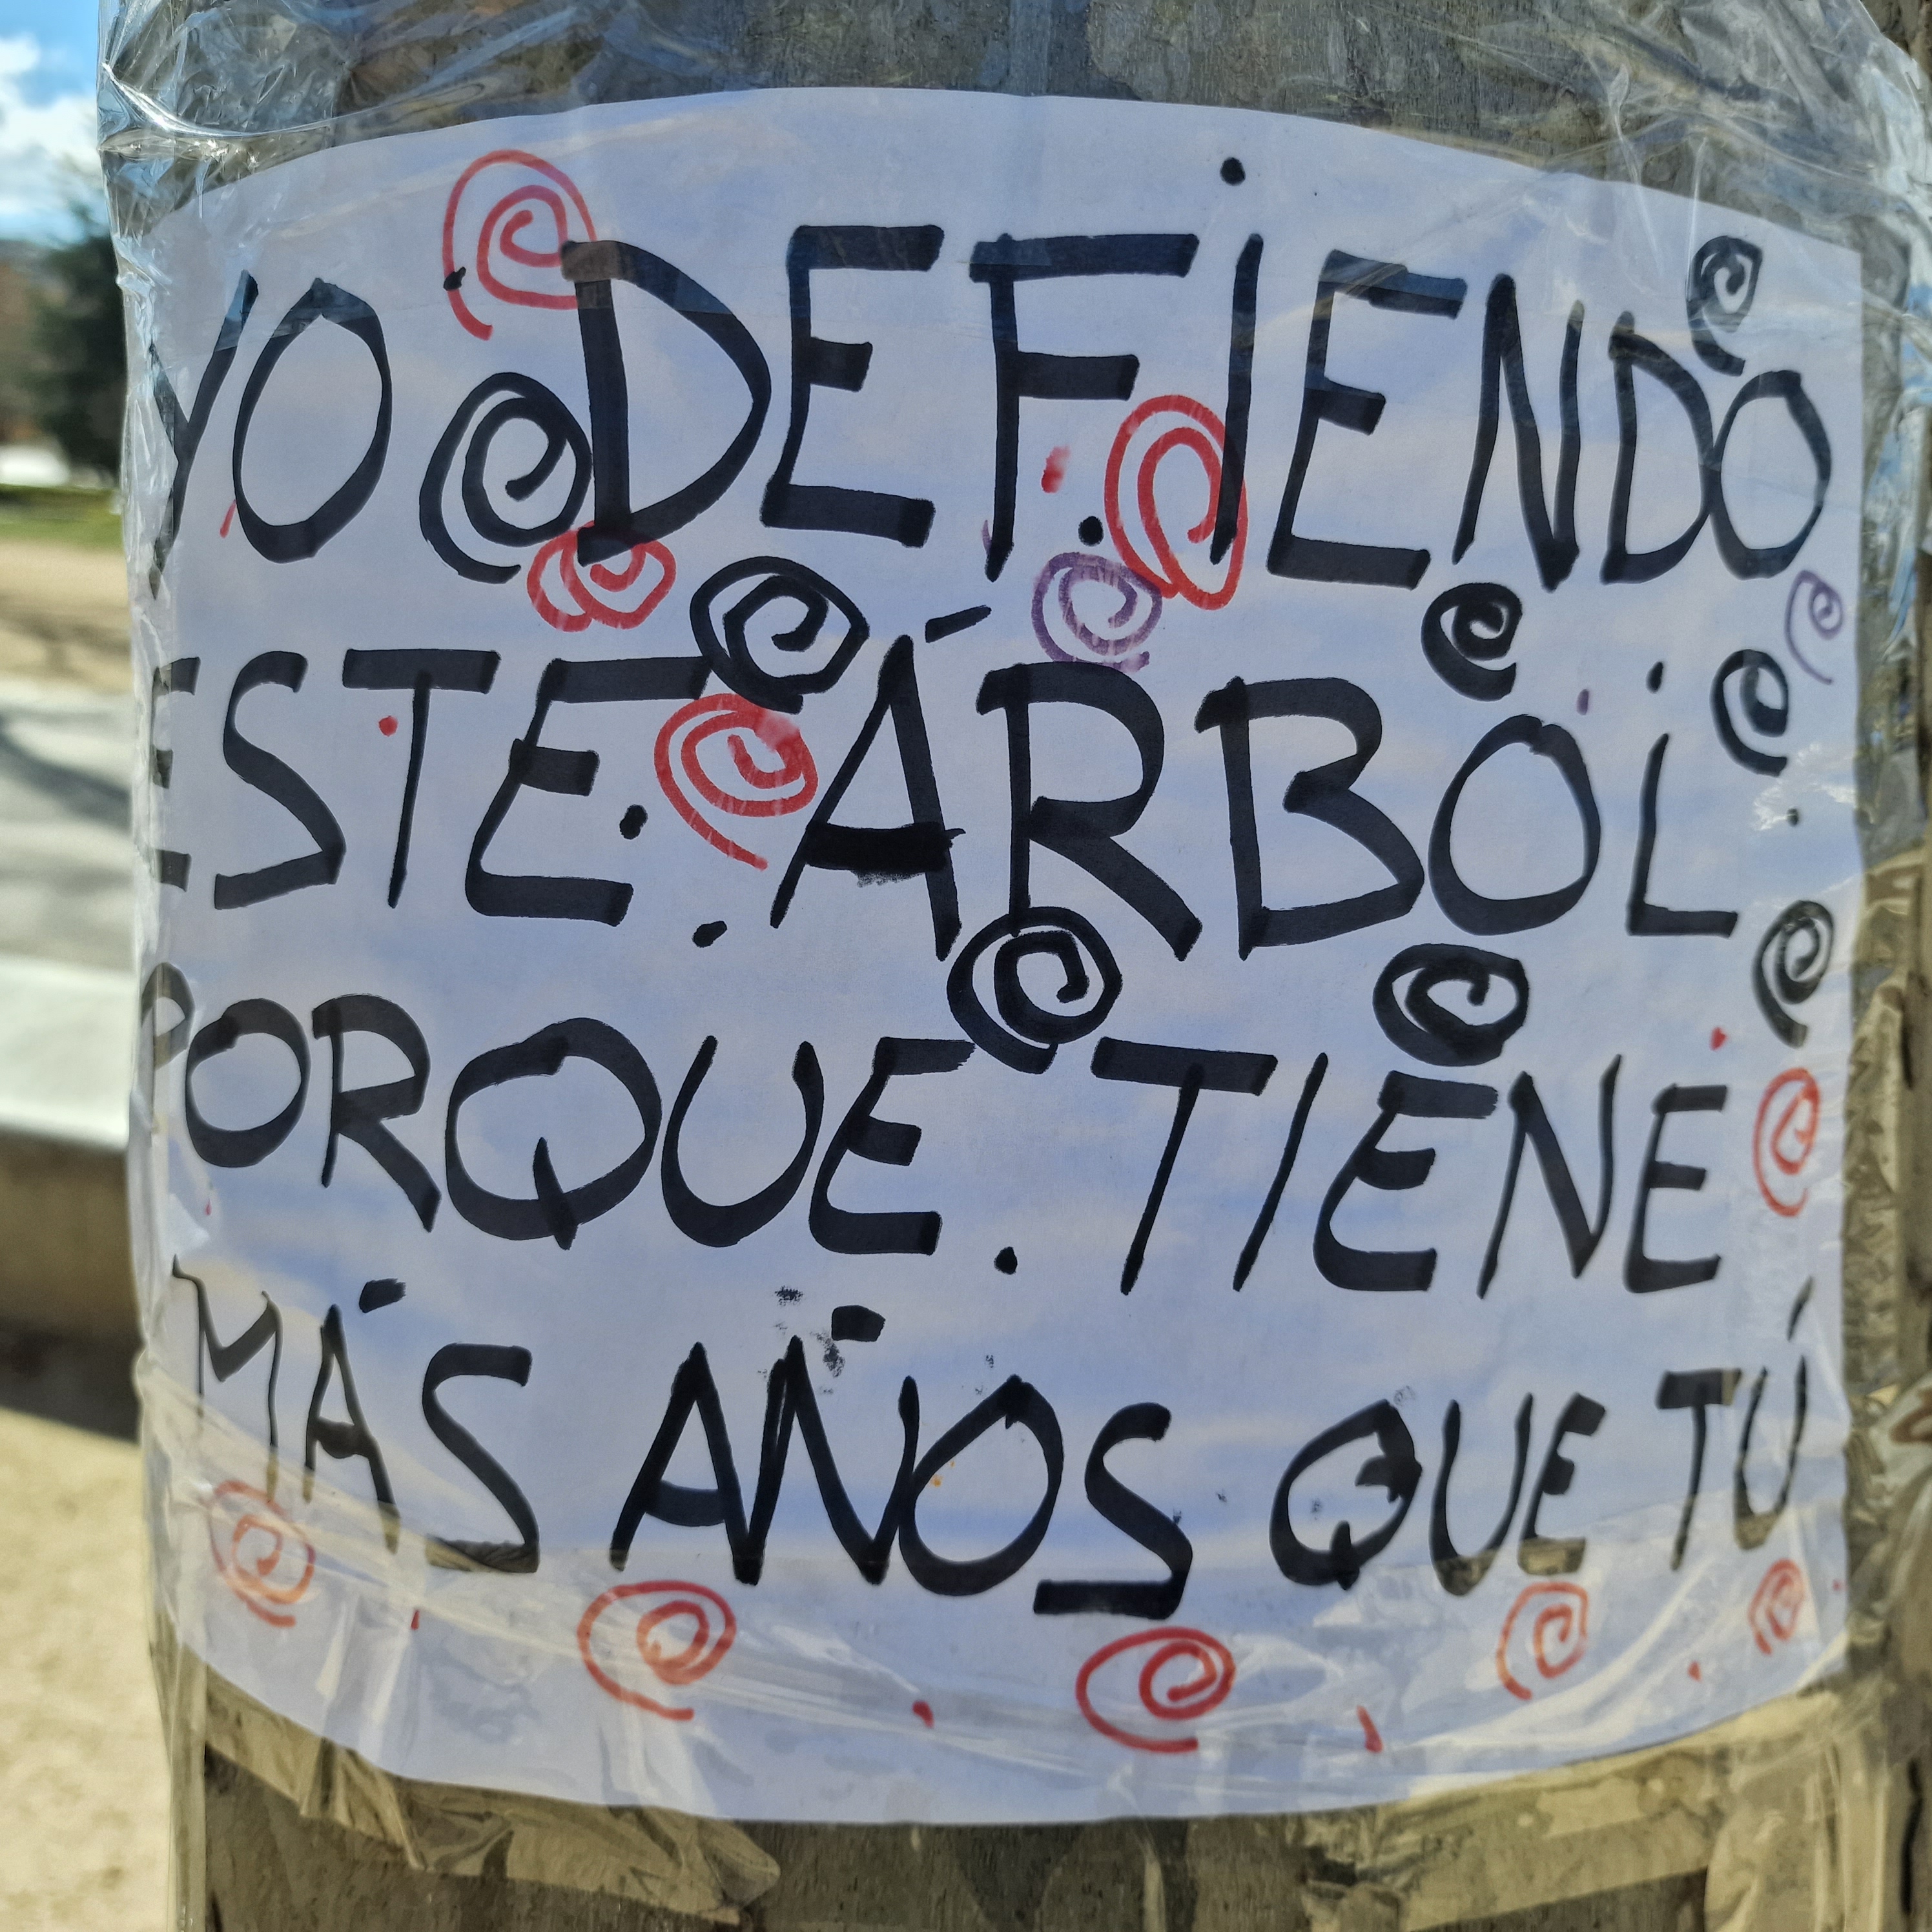 YO DEFIENDO
ESTE ÁRBOL
PORQUE TIENE
MÁS AÑOS QUE TÚ